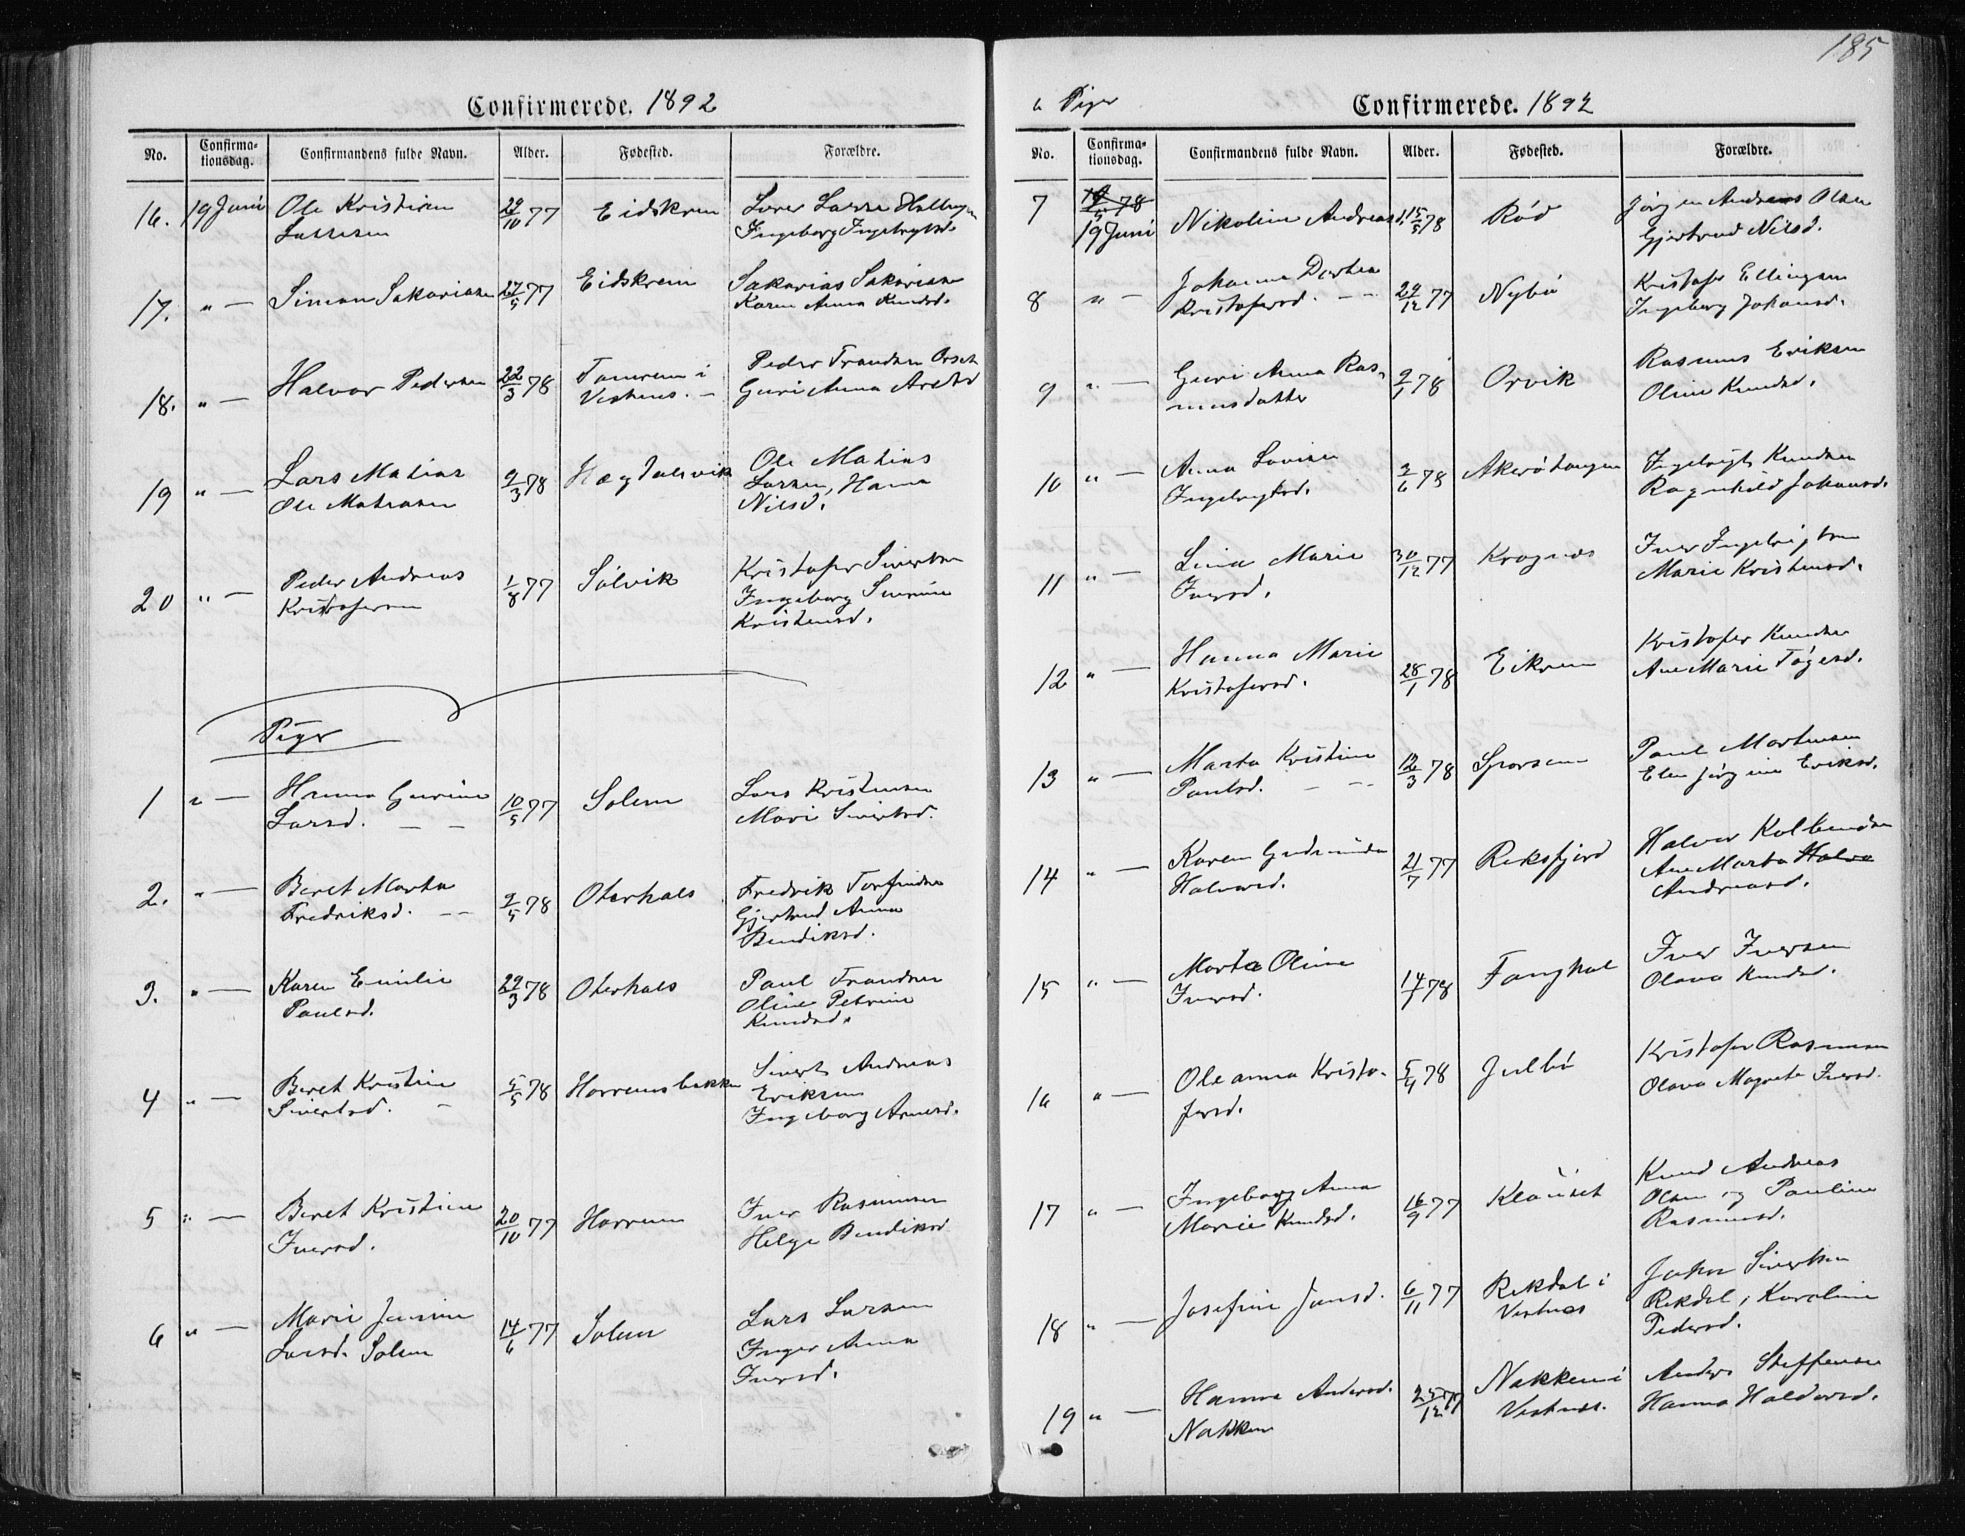 185
Confirmerede. 1892
No. Confirma-tionsdag. Confirmandens fulde Navn. Alder. Fødested. Forældre.
16. 19 Juni Ole Kristian 29/10 77 Eidskrem
Ingeborg Ingebrigtsd.
17. " — Simon Sakariasen 27/5 77 Eidskrem Sakarias Sakariasen
Karen Anna Knudsd.
18. " — Halvor Pedersen 22/3 78 Tomrem i Peder Trondsen Orset
Vestnes. — Guri Anna
19 " — Lars Matias 9/3 78 Hægdalsvik Ole Matias
Ole Matiasen Larsen, Hanna
Nilsd.
20 " — Peder Andreas 1/8 77 Sølvik Kristofer Sivertsen
Kristofersen Ingeborg Sivrine
Kristensd.
Piger
1 " — Hanna Gurine 10/5 77 Solem Lars Kristensen
Larsd. — — Mari Sivertsd.
2. " — Beret Marta 2/5 78 Oterhals Fredrik Torfindsen
Fredriksd. — — Gjertrud Anna
Bendiksd.
3. " — Karen Emilie 29/3 78 Oterhals Paul Trondsen
Paulsd. Oline Petrine
Knudsd.
4 " — Beret Kristine 5/5 78 Horremsbakke Sivert Andreas
Sivertsd. — Eriksen
Ingeborg Arnesd.
5 " — Beret Kristine 20/10 77 Horrem Iver Rasmussen
Iversd. Helge Bendiksd.
6 " — Marie Jensine 14/6 77 Solem Lars Larsen
Larsd. Solem Inger Anna
Iversd.
" Piger
Confirmerede. 1892
No. Confirma-tionsdag. Confirmandens fulde Navn. Alder. Fødested. Forældre.
7 19 Juni Nikoline Andreasd. 15/5 78 Rød Jørgen Andreas Olsen
Gjertrud Nilsd.
8 " — Johanna Dortea 29/12 77 Nybø Kristofer Ellingsen
Kristofersd. — — Ingeborg Johansd.
9 " — Guri Anna Ras- 9/1 78 Orvik Rasmus Eriksen
musdatter Oline Knudsd.
10 " — Anna Lovise 2/6 78 Akerøtangen Ingebrigt Knudsen
Ingebrigtsd. Ragnhild Johansd.
11 " — Lina Marie 30/12 77 Kragnes Iver Ingebrigtsen
Iversd. Marie Kristensd.
12 " — Hanna Marie 28/1 78 Eikrem Kristofer Knudsen
Kristofersd. Ane Marie Tøgesd.
13 " — Marta Kristine 12/3 78 Sporsem Paul Mortensen
Paulsd. — — Elen Jørgine Eriksd.
14 " — Karen Gudmunda 21/7 77 Reksfjord Halvor Kolbeindsen
Halvorsd. Ane Marta Halvo
Andreasd.
15 " — Marta Oline 14/7 78 Fanghol Iver Iversen
Iversd. Olava Knudsd.
16 " — Oleanna Kristo- 5/4 78 Julbø Kristofer Rasmussen
fersd. Olava Magrete Iversd.
17 " — Ingeborg Anna 16/9 77 Klauset Knud Andreas
Marie Knudsd. Olsen og Pauline
Rasmusd.
18 " — Josefine Jonsd. 6/11 77 Rekdal i Sivertsen
Vestnes Rekdal, Karoline
Pedersd.
19 " — Hanna Andersd. 25/12 77 Nakken i Anders Steffensen
Nakken Vestnes. Hanna Haldorsd.